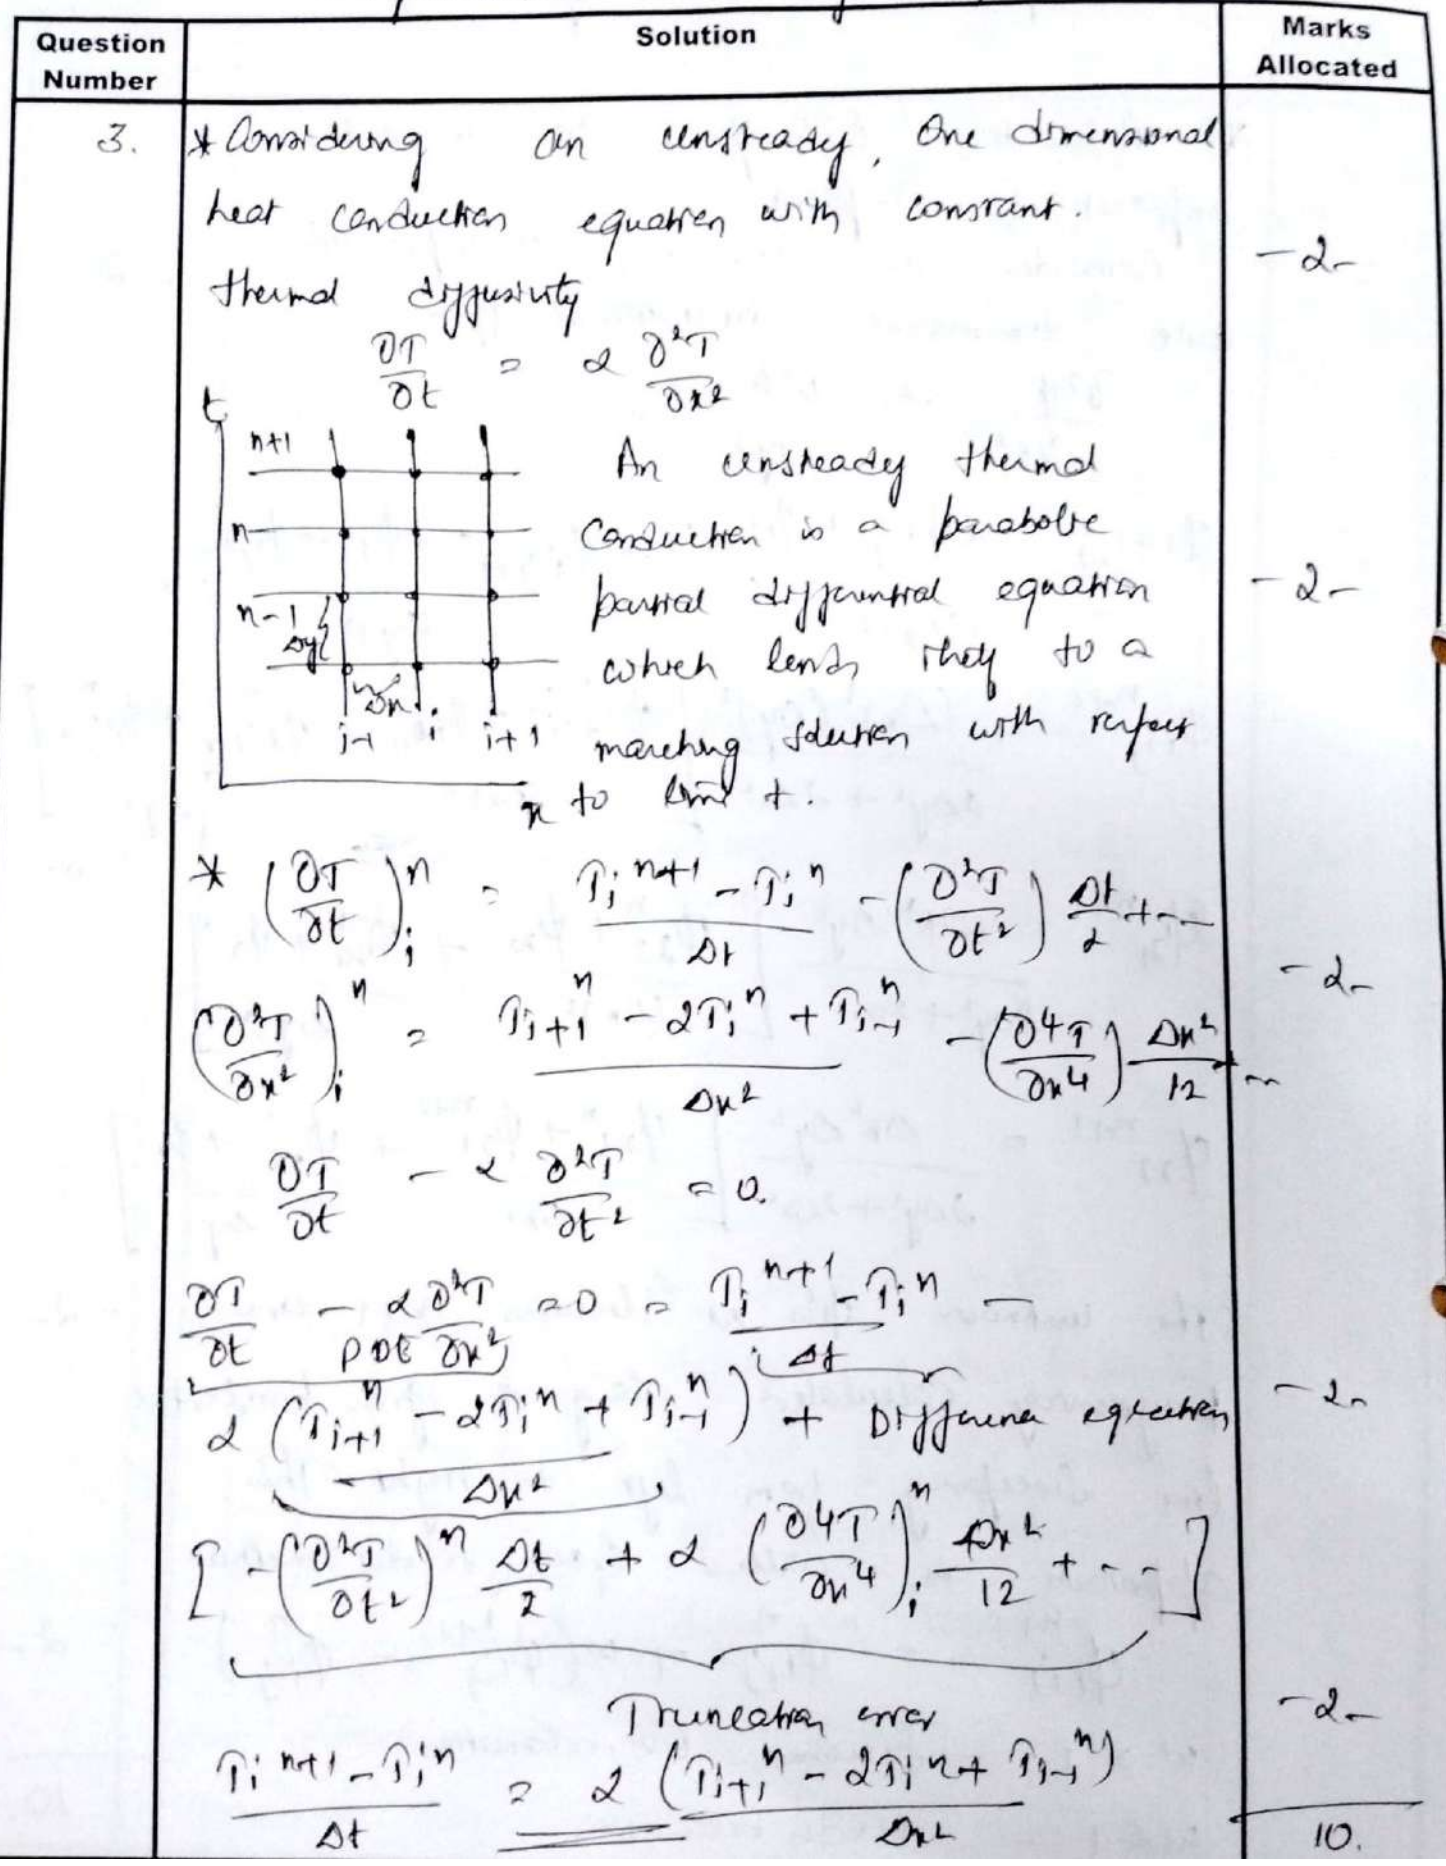 Question Number
Solution
Marks Allocated
3.
* Considering an unsteady, One dimensional
heat conduction equation with constant.
- 2 -
thermal diffusivity
∂T/∂t = α ∂²T/∂x²
t
n+1
n
n-1
Δy
Δx
i-1 i i+1
x
An unsteady thermal
conduction is a parabolic
partial differential equation
- 2 -
which lends itself to a
marching solution with respect
to time t.
* (∂T/∂t)ᵢⁿ = (Tᵢⁿ⁺¹ - Tᵢⁿ)/Δt - (∂²T/∂t²) Δt/2 + --
- 2 -
(∂²T/∂x²)ᵢⁿ = (Tᵢ₊₁ⁿ - 2Tᵢⁿ + Tᵢ₋₁ⁿ)/Δx² - (∂4T/∂x4) Δx²/12 + --
∂T/∂t - α ∂²T/∂t² = 0.
∂T/∂t - α ∂²T/∂x² = 0 = (Tᵢⁿ⁺¹ - Tᵢⁿ)/Δt -
PDE
α (Tᵢ₊₁ⁿ - 2Tᵢⁿ + Tᵢ₋₁ⁿ)/Δx² + Difference equation
- 2 -
[ -(∂²T/∂t²)ⁿ Δt/2 + α (∂4T/∂x4)ᵢⁿ Δx²/12 + -- ]
Truncation error
- 2 -
(Tᵢⁿ⁺¹ - Tᵢⁿ)/Δt = α (Tᵢ₊₁ⁿ - 2Tᵢⁿ + Tᵢ₋₁ⁿ)/Δx²
10.